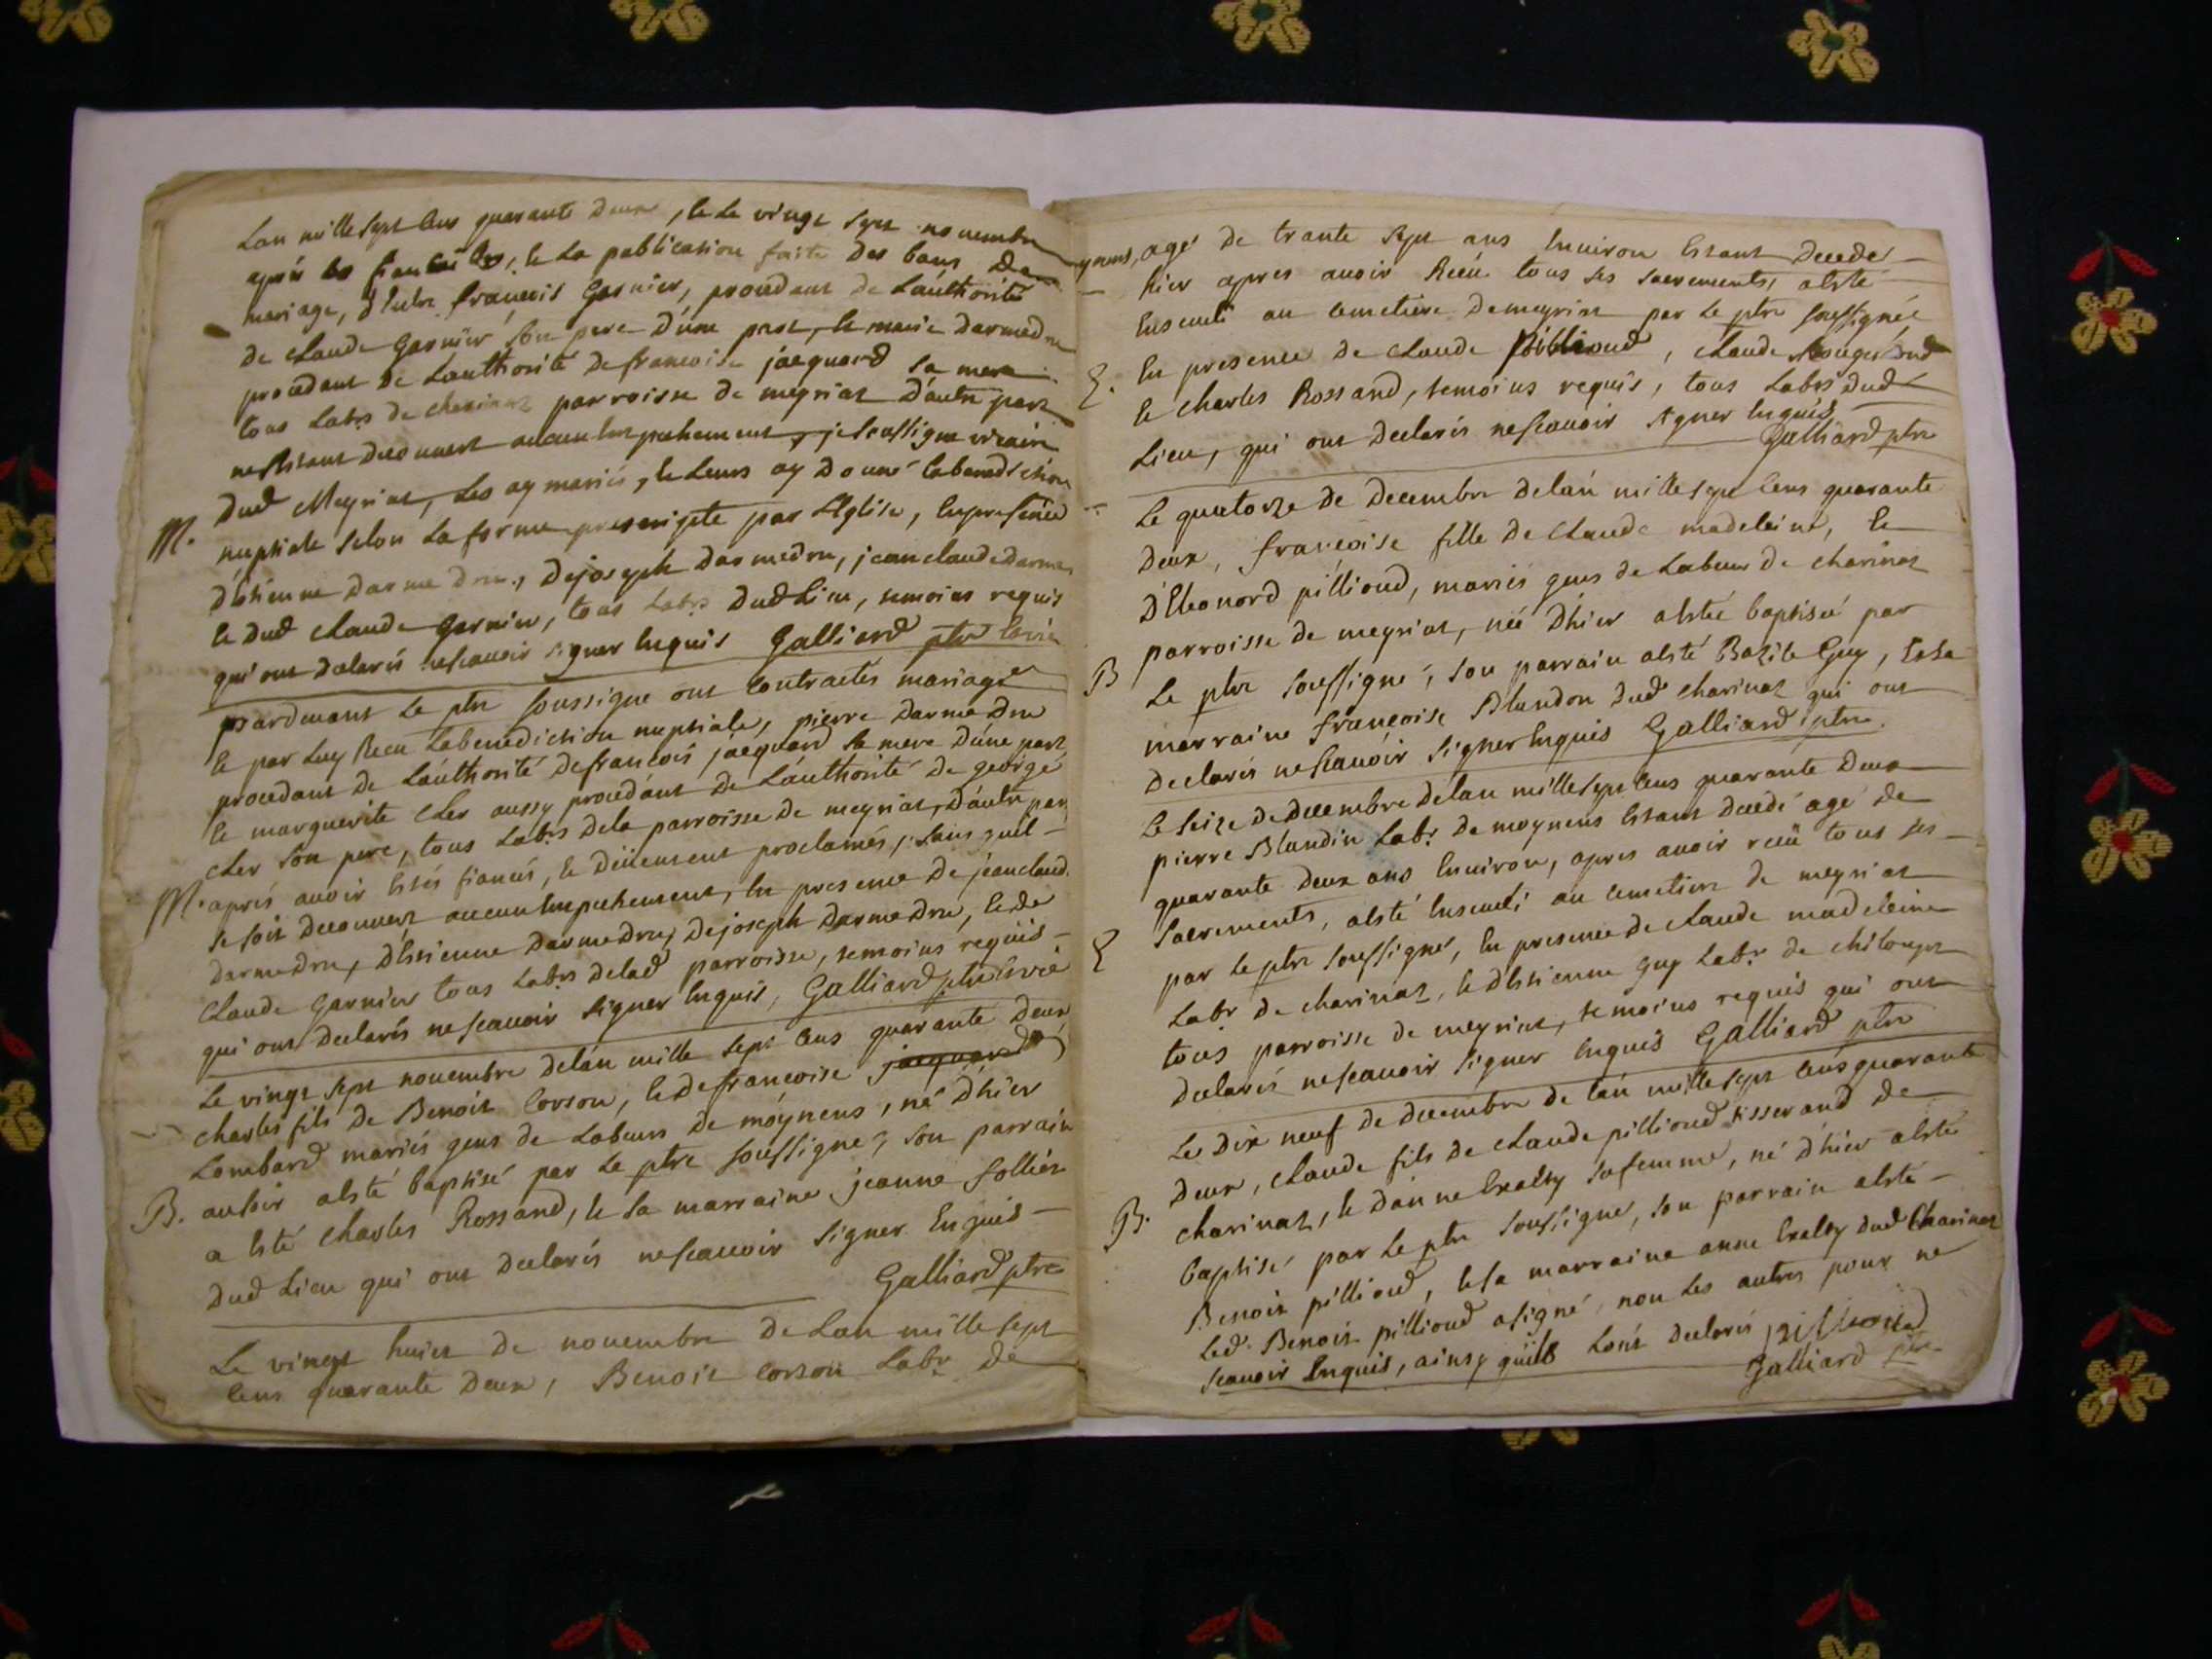 Lan mille sept Cens quarante deux, le Le vingt sept nouembre
aprés les fiancailles, Et La publication faite des bans De
mariage, Entre françois Garnier, procedant de L'authorité
de claude Garnier son pere D'une part, Et marie Darmedru
procedant de L'authorité de francoise jacquard sa mere
tous Labrs de charinaz parroisse de meyriat D'autre part
ne sestant decouuert aucun Empechement, je soussigné vicaire
Dud Meyriat, Les ay mariés, Et Leurs ay Donné la benediction
M. nuptiale selon La forme prescripte par L'Eglise, En presence
D'Estienne Darmedru, De joseph Darmedru, jean claude Darme
Et dud claude Garnier, tous Labrs Dud Lieu, temoins requis
qui ont declarés ne scauoir signer Enquis Galliard ptre
pardeuant Le ptre soussigne ont Contractés mariage
Et par Luy Receu La benediction nuptiale, pierre Darmedru
procedant de L'authorité de francois jacquard sa mere D'une part
Et marguerite Cler aussy procedant de L'authorité de george
Cler son pere, tous Labrs de la parroisse de meyriat, D'autre par
M. aprés auoir Estés fiancés, Et Düement proclamés, sans quil
se soit decouuert aucun Empechement, En presence de jean claud
Darmedru, D'Estienne Darmedru, De joseph Darmedru, Et de
Claude Garnier tous Labrs de lad parroisse, temoins requis
qui ont declarés ne scauoir signer Enquis, Galliard ptre
Le vingt sept nouembre de lan mille sept Cens quarante deux
charles fils de Benoit Corson, Et de francoise jacquard
Lombard mariés gens de Labeurs de moynens, né D'hier
B. au soir a Esté baptisé par Le ptre soussigné, son parrain
a Esté charles Rossand, Et sa marraine jeanne follier
dud Lieu qui ont declarés ne scauoir signer Enquis
Galliard ptre
Le vingt huict de nouembre de Lan mille sept
Cens quarante deux, Benoit Corson Labr de
agé de trante sept ans Enuiron Estant decedé
hier apres auoir Receu tous ses sacrements, a Esté
Enseueli au Cemetiere de meyriat par Le ptre soussigné
E. En presence de claude pillioud, claude
Et charles Rossand, temoins requis, tous Labrs dud
Lieu, qui ont declarés ne scauoir signer Enquis
Galliard ptre
Le quatorze de decembre de lan mille sept Cens quarante
deux, francoise fille de claude madeleine, Et
D'Eleonord pillioud, mariés gens de Labeur de charinaz
parroisse de meyriat, née D'hier a Esté baptisée par
B Le ptre soussigné, son parrain a Esté Bazile Guy, Et sa
marraine francoise Blandon dud charinaz qui ont
declarés ne scauoir signer Enquis Galliard ptre
Le seize de decembre de lan mille sept Cens quarante deux
pierre Blandin Labr de moynens Estant decedé agé de
quarante deux ans Enuiron, apres auoir receu tous ses
sacrements, a Esté Enseueli au Cemetiere de meyriat
E par Le ptre soussigné, En presence de claude madeleine
Labr de charinaz, Et D'Estienne guy Labr de chiloup
tous parroisse de meyriat, temoins requis qui ont
declarés ne scauoir signer Enquis Galliard ptre
Le dix neuf de decembre de lan mille sept Cens quarante
deux, claude fils de claude pillioud tisserand de
charinaz, Et D'anne sa femme, né D'hier a Esté
B. baptisé par Le ptre soussigné, son parrain a Esté
Benoit pillioud, Et sa marraine anne dud Charinaz
Led. Benoit pillioud a signé, non Les autres pour ne
scauoir Enquis, ainsy quils Lont declarés pillioud
Galliard ptre